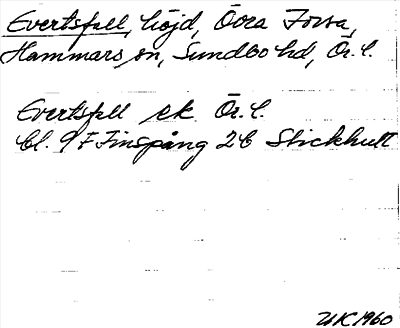 Evertsfall, höjd, Övra Forsa,
Hammars sn, Sundbo hd, Ör. l.
Evertsfall ek Ör. l.
bl. 9 F Finspång 2 C Stickhult
UK 1960